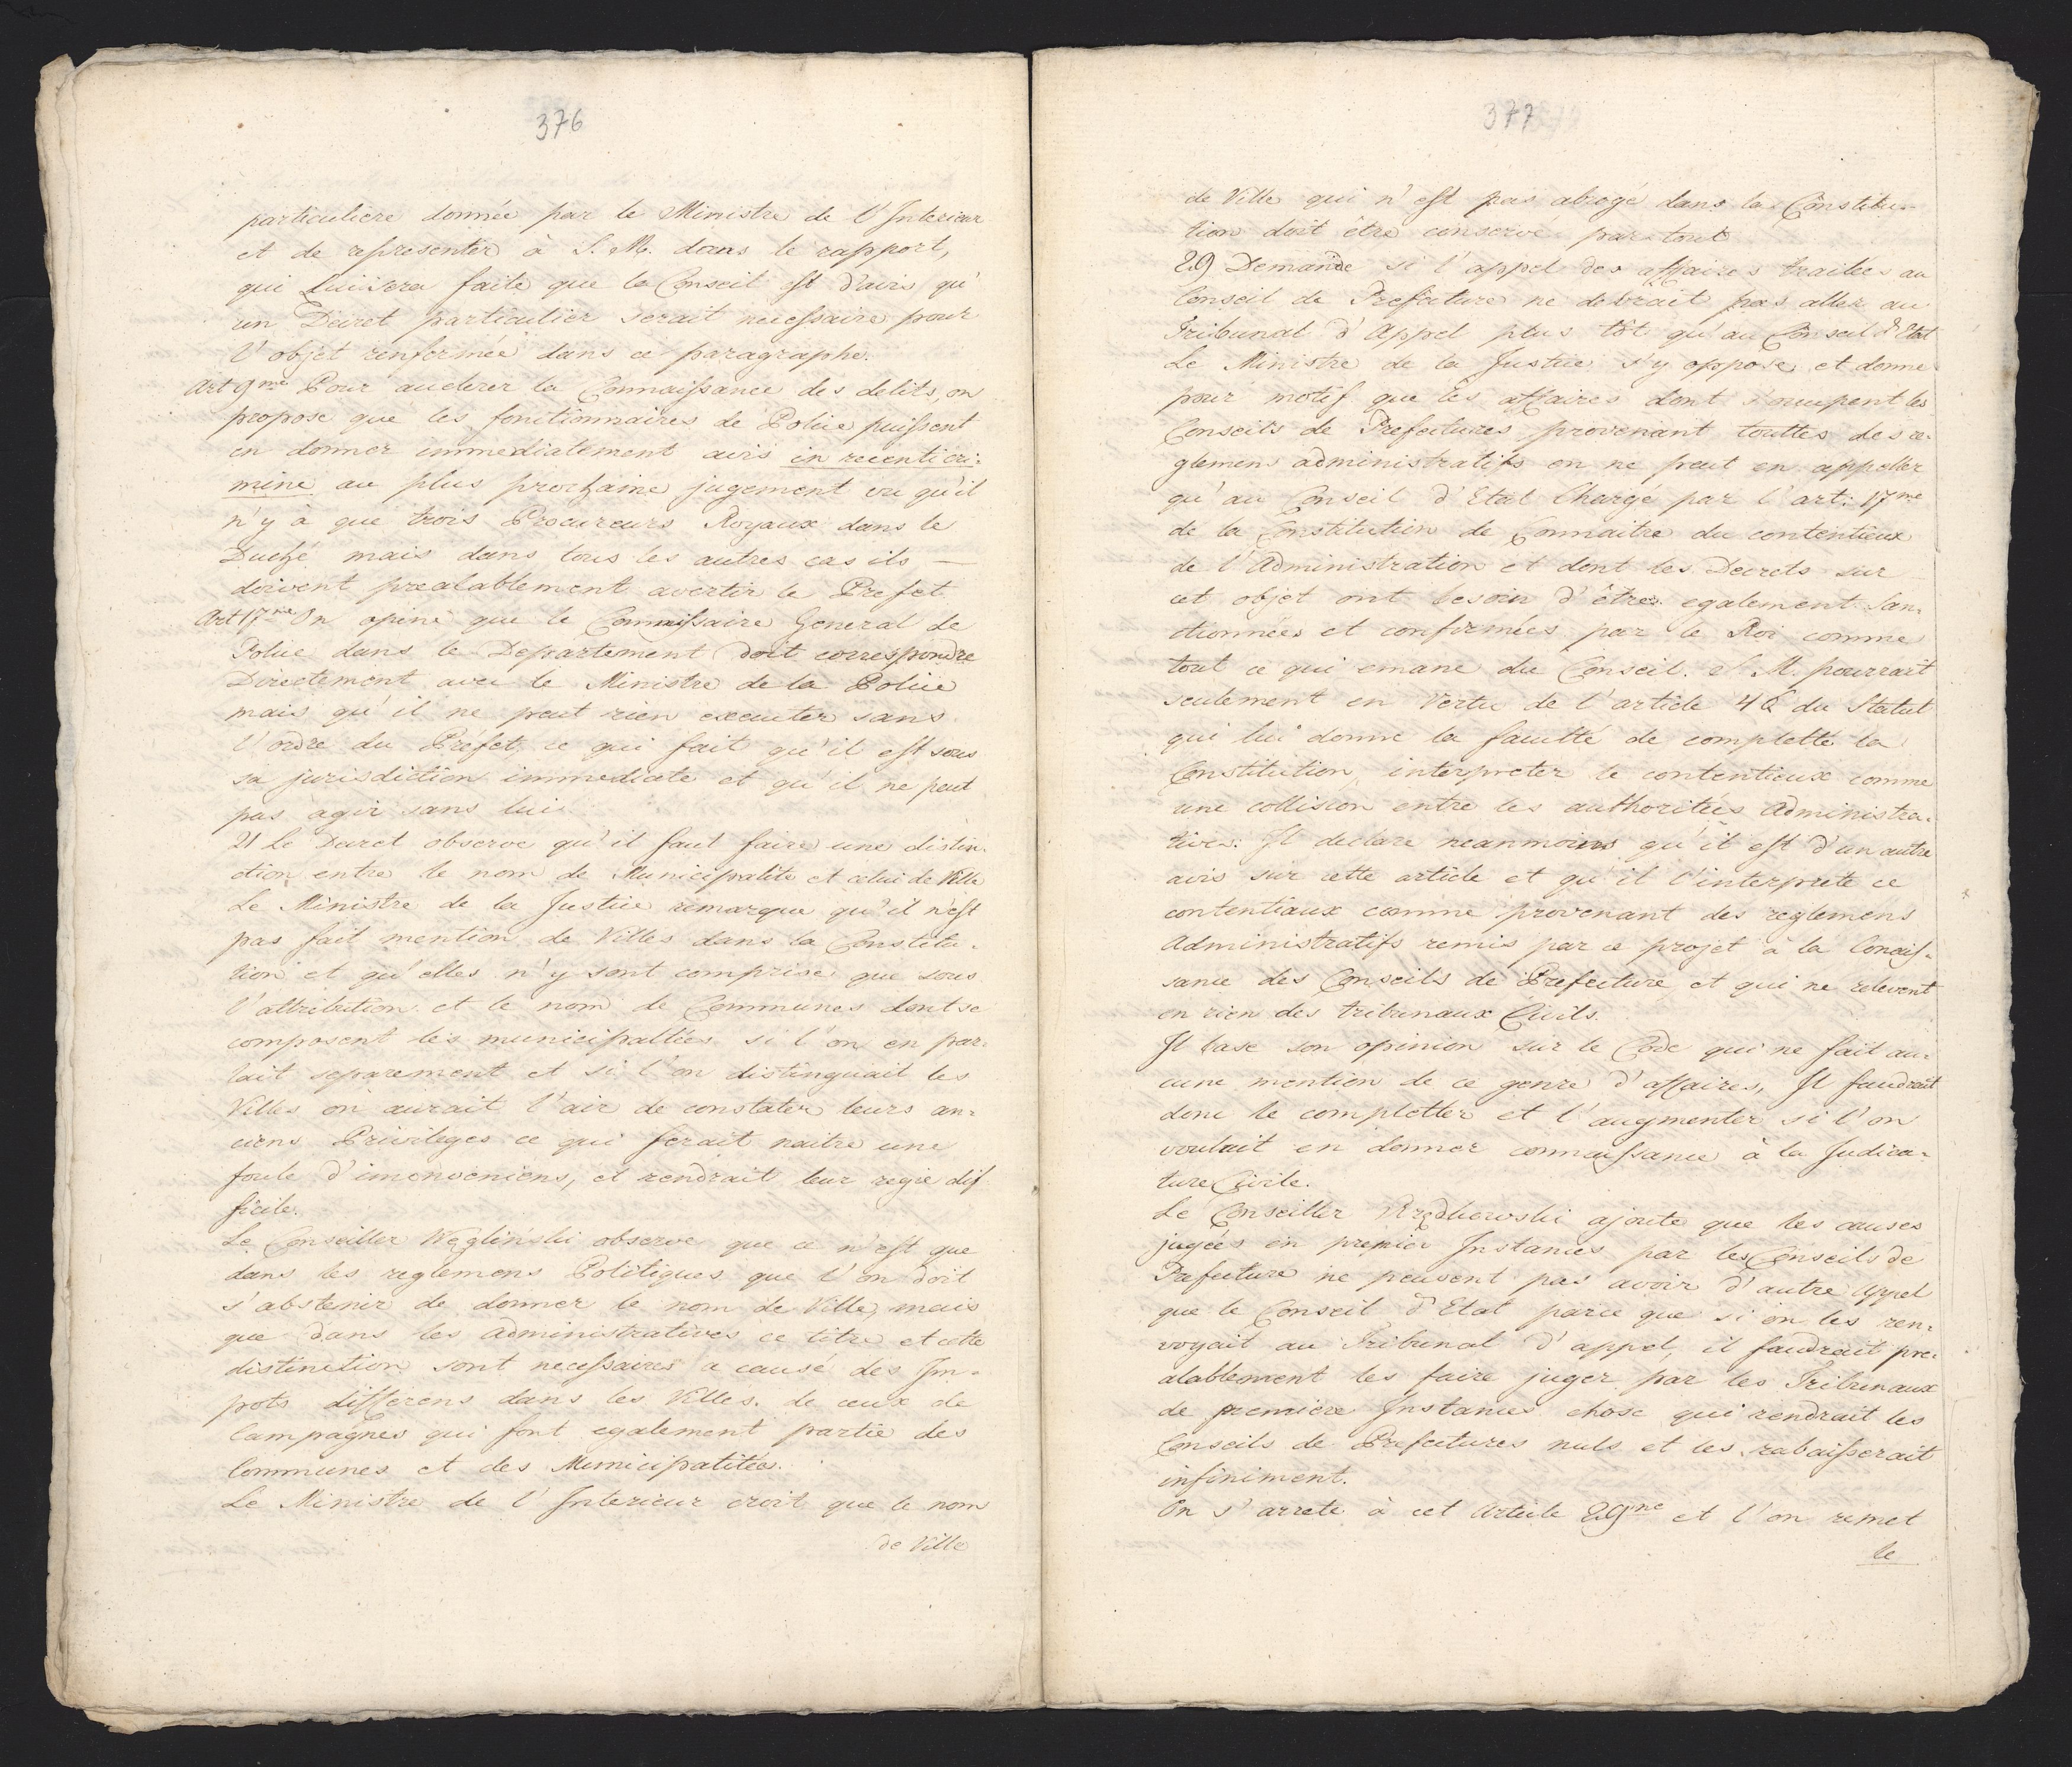 376
particuliere donnée par le Ministre de l'Interieur
et de representer à S. M. dans le rapport,
qui Lui sera faite que le Conseil est d'avis qu'
un Decret particulier serait necessaire pour
l'objet renfermée dans ce paragraphe.
Art 9me Pour accelerer la Connaissance des delits, on
propose que les fonctionnaires de Police puissent
en donner immediatement avis in recenti cri-
mine au plus prochaine jugement vu qu'il
n'y à que trois Procureurs Royaux dans le
Duché mais dans tous les autres cas ils —
doivent prealablement avertir le Prefet
Art 17me On opine que le Commissaire General de
Police dans le Departement doit correspondre
Directement avec le Ministre de la Police
mais qu'il ne peut rien executer sans
l'ordre du Préfet, ce qui fait qu'il est sous
sa jurisdiction immediate et qu'il ne peut
pas agir sans lui.
21 Le Decret observe qu'il faut faire une distin-
ction entre le nom de Municipalité et celui de Ville
Le Ministre de la Justice remarque qu'il n'est
pas fait mention de Villes dans la Constitu-
tion et qu'elles n'y sont comprise que sous
l'attribution et le nom de Communes dont se
composent les municipaltiés si l'on en par-
lait separement et si l'on distinguait les
Villes on aurait l'air de constater leurs an-
ciens Privileges ce qui ferait naitre une
foule d'inconveniens, et rendrait leur regie dif
ficile.
Le Conseiller Węgliński observe que ce n'est que
dans les reglemens Politiques que l'on doit
s'abstenir de donner le nom de Ville, mais
que dans les administratives ce titre et cette
distinction sont necessaires a causé des Im-
pots differens dans les Villes de ceux de
Campagnes qui font egalement partie des
Communes et des Municipalitées.
Le Ministre de l'Interieur croit que le nom
de Ville
377
de Ville qui n'est pas abrogé dans la Constitu-
tion doit être conservé par tout
29 Demande si l'appel des affaires traitées au
Conseil de Prefecture ne debrait pas aller au
Tribunal d'Appel plus tôt qu'au Conseil d'Etat
Le Ministre de la Justice s'y oppose et donne
pour motif que les affaires dont s'occupent les
Conseils de Prefectures provenant touttes des re-
glemens administratifs on ne peut en appeller
qu'au Conseil d'Etat Chargé par l'art: 17me
de la Constitution de Connaitre du contentieux
de l'Administration et dont les Decrets sur
cet objet ont besoin d'êtres egalement San-
ctionnées et confirmées par le Roi comme
tout ce qui emane du Conseil. S. M. pourrait
seulement en Vertu de l'article 46 du Statut
qui lui donne la faculté de completté la
Constitution, interpreter le contentieux comme
une collision entre les authoritées Administra-
tives. Il declare neanmoins qu'il est d'un autre
avis sur cette article et qu'il l'interprete ce
contentiaux comme provenant des reglemens
Administratifs remis par ce projet à la Conais-
sance des Conseils de Prefecture et qui ne relevent
en rien des tribunaux Civils.
Il base son opinion sur le Code qui ne fait au-
cune mention de ce genre d'affaires, Il faudrait
donc le completter et l'augmenter si l'on
voulait en donner connaissance à la Judica-
ture Civile.
Le Conseiller ajoute que les causes
jugées en premier Instances par les Conseils de
Prefecture ne peuvent pas avoir d'autre Appel
que le Conseil d'Etat parce que si on les ren-
voyait au Tribunal d'appel, il faudrait pre-
alablement les faire juger par les Tribunaux
de premiere Instances chose qui rendrait les
Conseils de Prefectures nuls et les rabaisserait
infiniment.
On s'arrete à cet Article 29me et l'on remet
le